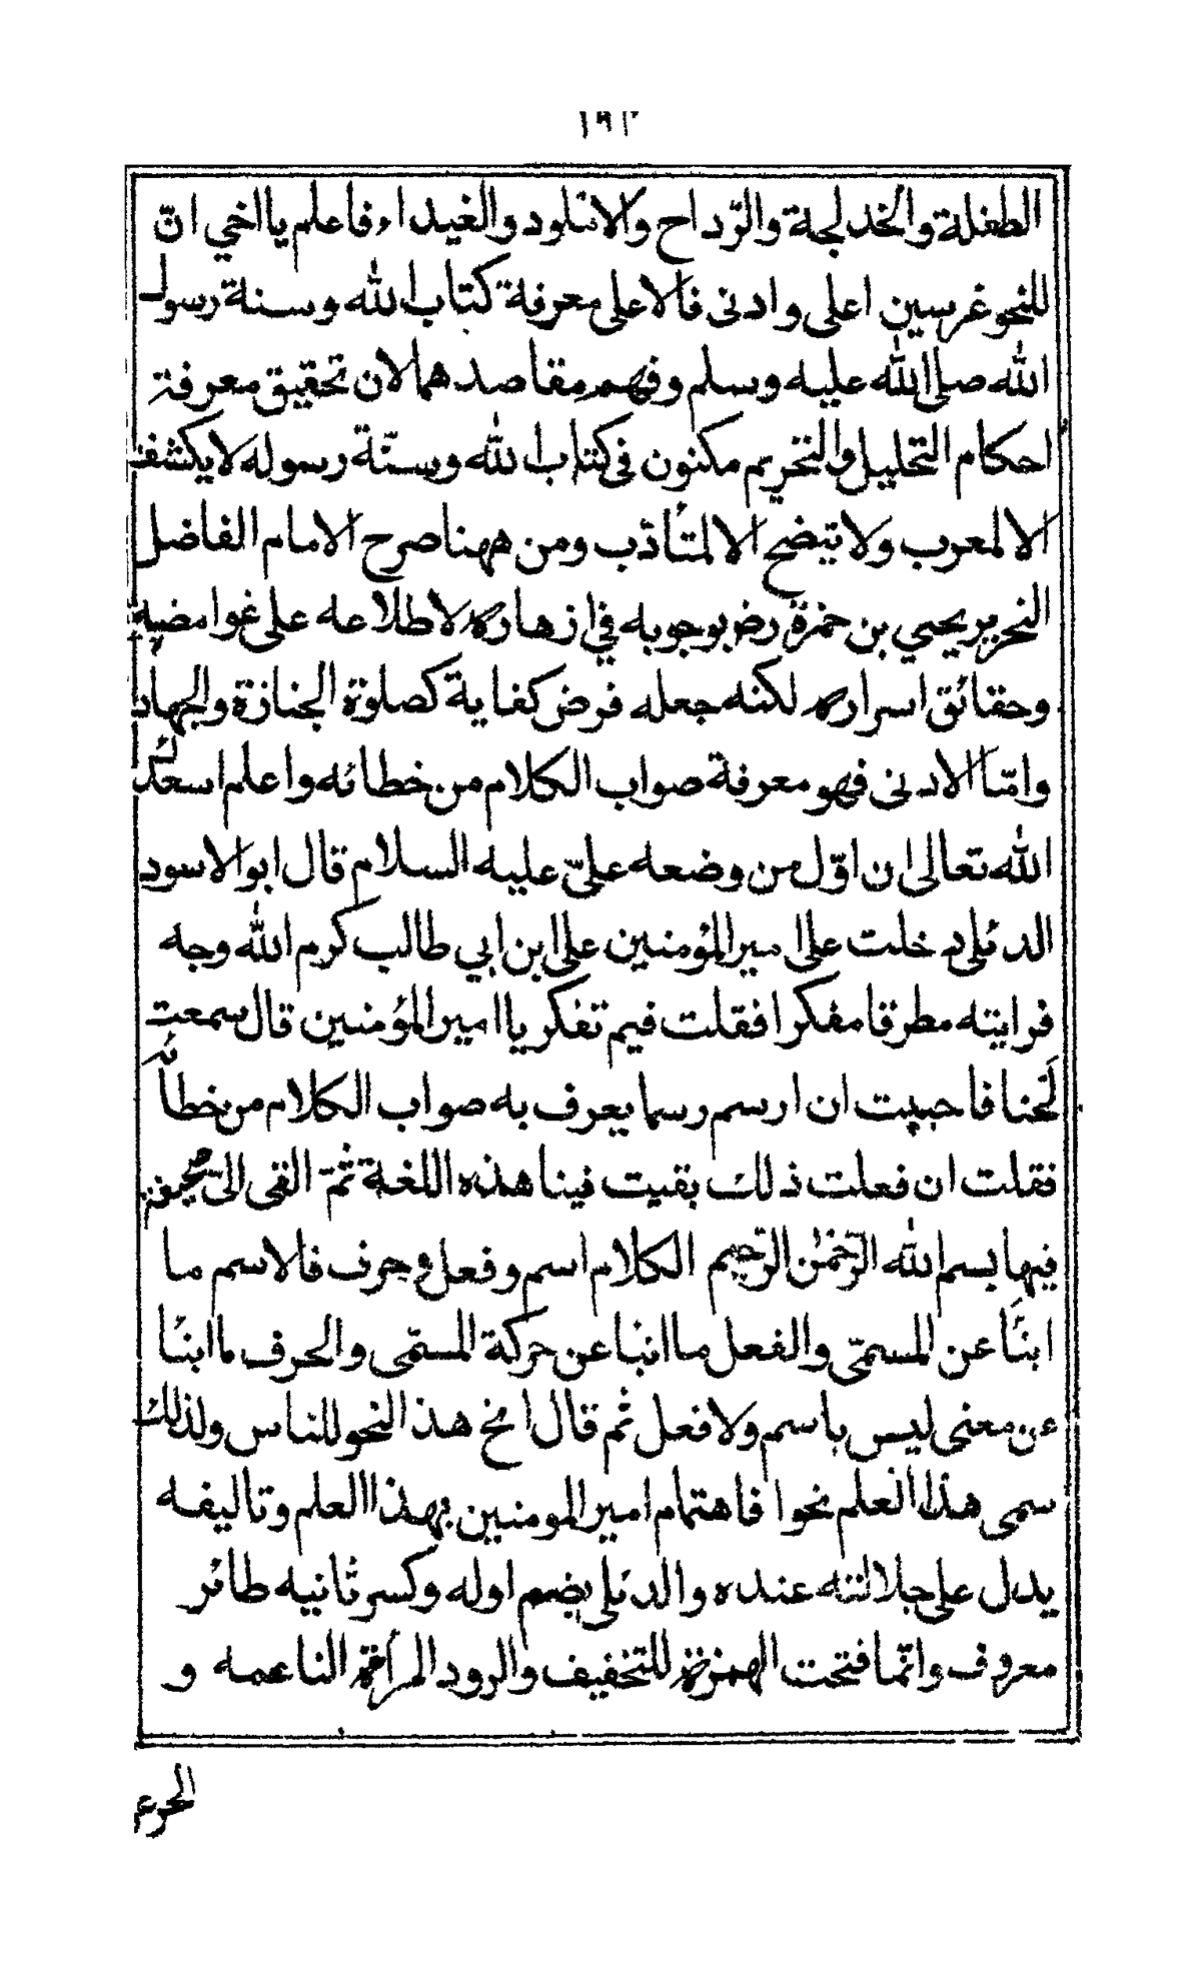 ١٩٢
الطفلة والخدلجة والرّداح والاملود والغيداء فاعلم يا اخي انّ
للنحو غرسين اعلى وادنى فالاعلى معرفة كتاب الله وسنة رسول
الله صلى الله عليه وسلم وفهم مقاصدهما لان تحقيق معرفة
احكام التحليل والتحريم مكنون في كتاب الله وسنّة رسوله لا يكشف
الا لمعرب ولا يتضح الا لمتأدب ومن ههنا صرح الامام الفاضل
النحرير يحيي بن حمزة رض بوجوبه في ازهاره لاطلاعه على غوامضه
وحقائق اسراره لكنه جعله فرض كفاية كصلوة الجنازة والجهاد
وامّا الادنى فهو معرفة صواب الكلام من خطائه واعلم اسعدك
الله تعالى ان اوّل من وضعه عليّ عليه السلام قال ابو الاسود
الدئلي دخلت على امير المؤمنين على ابن ابي طالب كرم الله وجه
فرايته مطرقا مفكرا فقلت فيم تفكر يا امير المؤمنين قال سمعت
لَحنا فاحببت ان ارسم رسما يعرف به صواب الكلام من خطائه
فقلت ان فعلت ذلك بقيت فينا هذه اللغة ثمّ القى اليّ صحيفة
فيها بسم الله الرّحمٰن الرّحيم الكلام اسم وفعل وحرف فالاسم ما
انبَأ عن المسمّى والفعل ما انبا عن حركة المسمّى والحرف ما انبا
عن معنى ليس باسم ولا فعل ثم قال انح هذ النحو للناس ولذلك
سمى هذا العلم نحوا فاهتمام امير المومنين بهذا العلم وتاليفه
يدل على جلالته عنده والدئلي بضم اوله وكسر ثانيه طائر
معروف وانّما فتحت الهمزة للتخفيف والرود المرأة الناعمه و